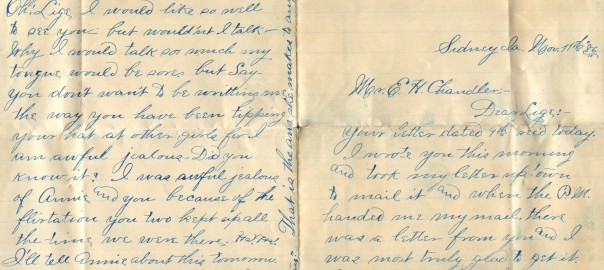 Oh! Lige I would like so well
to see you but wouldn't I talk –
Why I would talk so much my
tongue would be sore but Say –
you don't want to be writing me
the way you have been tipping
your hat at other girls for I
am awful jealous. Did you
know it? I was awful jealous
of Annie and you because of the
flirtation you two kept up all
the time we were there.
I'll tell Annie about this tomorrow.
That is the ans. she makes to any
Sidney Ia. Nov. 11th
Mr. E. H. Chandler:-
Dear Lige:-
Your letter dated 9th rec'd today.
I wrote you this morning
and took my letter up town
to mail it and when the P.M.
handed me my mail there
was a letter from you and I
was most truly glad to get it.